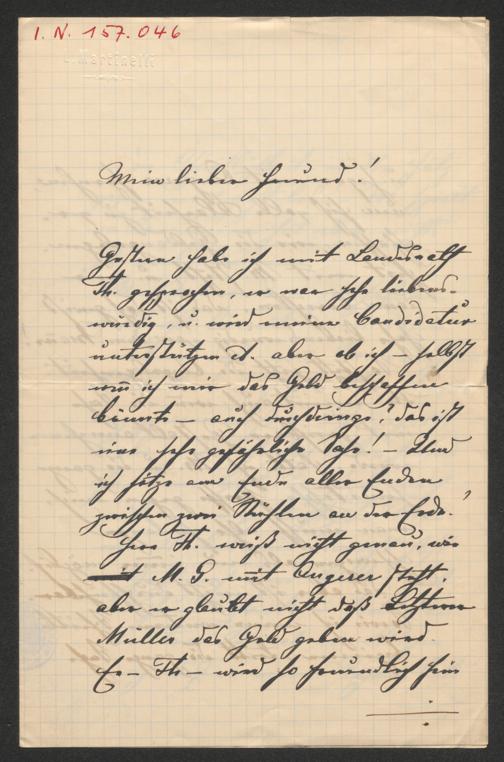 I. N. 157.046
Martinelli
Mein lieber Freund!
Gestern habe ich mit Landesrath
Th. gesprochen, er war sehr liebens-
würdig, u. wird meine Candidatur
unterstützen etc. aber ob ich – selbst
wenn ich mir das Geld beschaffen
könnte – auch durchdringe? das ist
eine sehr gefährliche Sache! – Und
ich sitze am Ende aller Enden
zwischen zwei Stühlen an der Erde!
Herr Th. weiß nicht genau, wie
M. G. mit Angerer steht,
aber er glaubt nicht daß Letzterer
Müller das Geld geben wird.
Er – Th – wird so freundlich sein